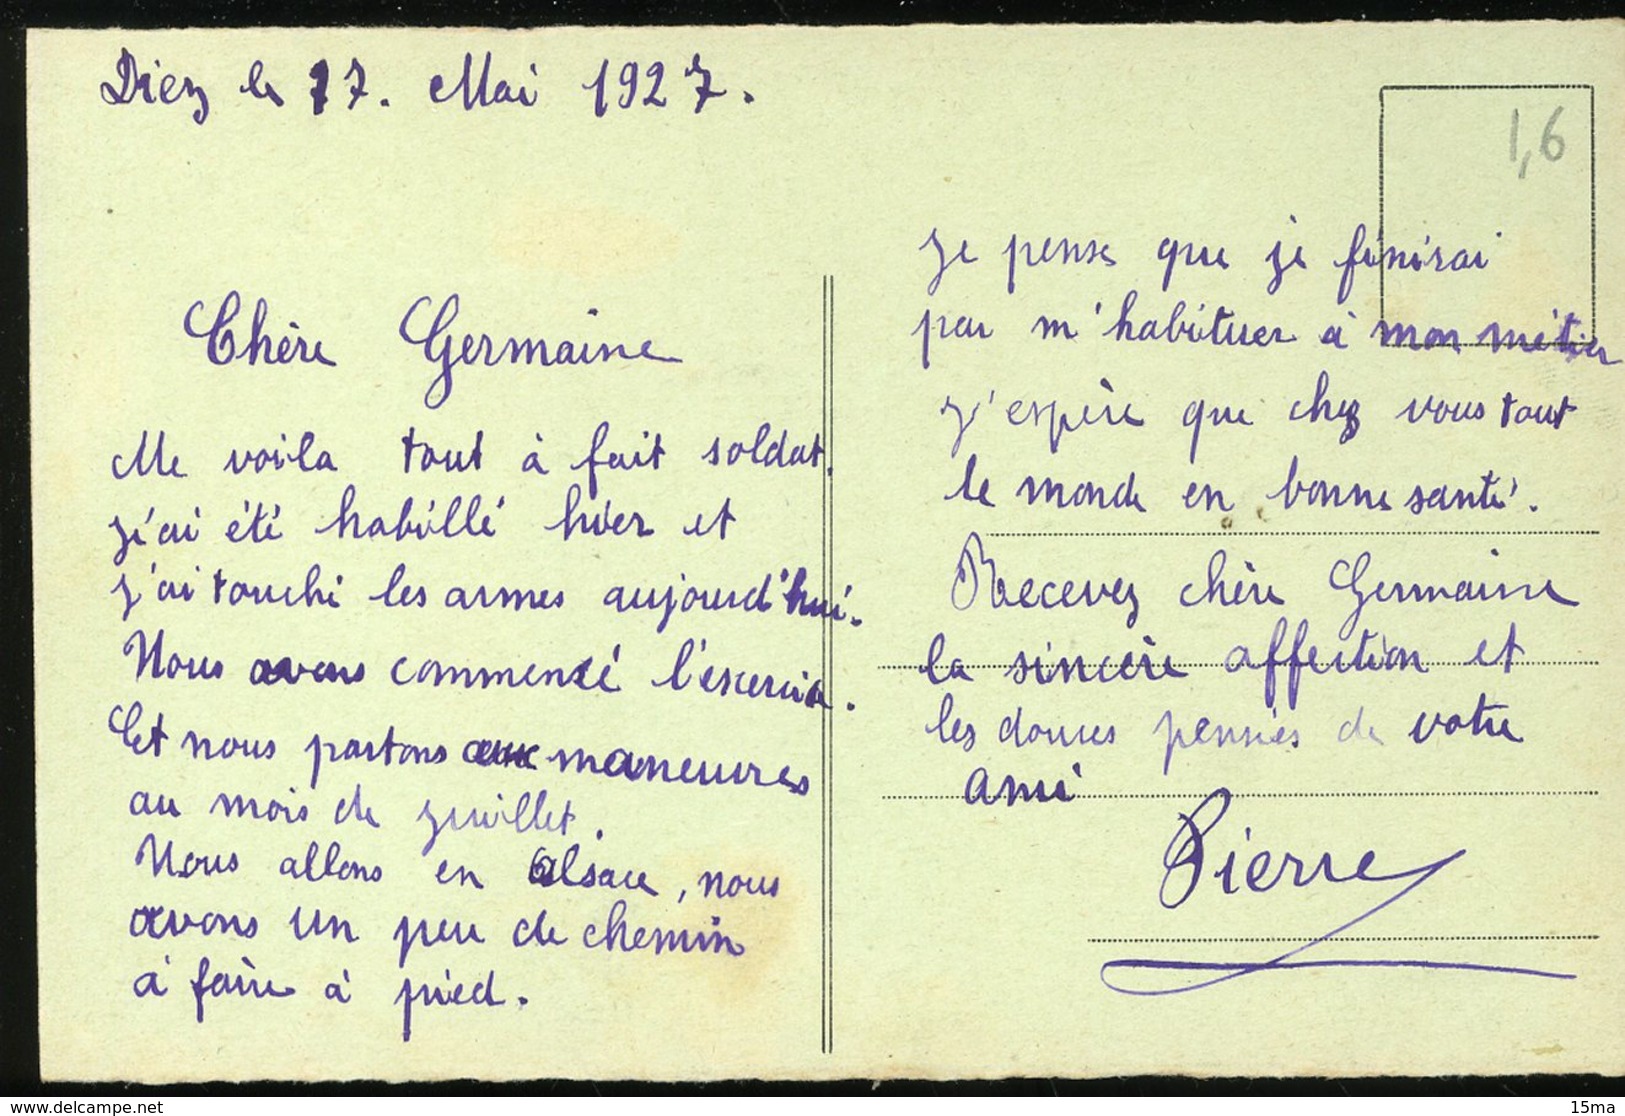 Diez le 17. Mai 1927.
Chère Germaine
Me voila tout à fait soldat.
j'ai été habillé hier et
j'ai touché les armes aujourd'hui.
Nous avons commencé l'exercice.
Et nous partons aux maneuvres
au mois de juillet.
Nous allons en Alsace, nous
avons un peu de chemin
à faire à pied.
1,6
je pense que je finirai
par m'habituer à mon métier
j'espère que chez vous tout
le monde en bonne santé.
Recevez chère Germaine
la sincère affection et
les douces pensées de votre
ami
Pierre
delcampe.net
15ma